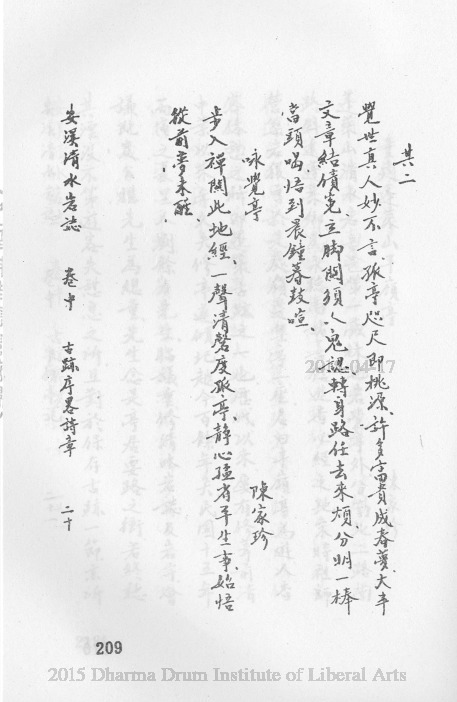 其二
覺世真人妙不言、孤亭咫尺即桃源、許多富貴成春夢、大半
文章結債冤、立脚關須人鬼認、轉身路任去來煩、分明一棒
當頭喝、悟到晨鐘暮鼓喧、
咏覺亭 陳家珍
步入禪關此地經、一聲清磬度孤亭、靜心猛省平生事、始悟
從前夢未醒、
安溪清水岩誌 卷中 古跡序畧詩章 二十
209
2015-04-17
2015 Dharma Drum Institute of Liberal Arts